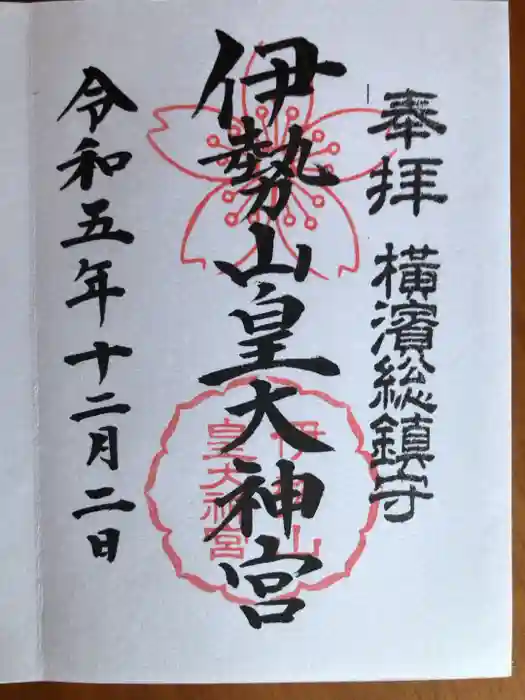 奉拝 横濱総鎮守
伊勢山皇大神宮
伊勢山
皇大神宮
令和五年十二月二日